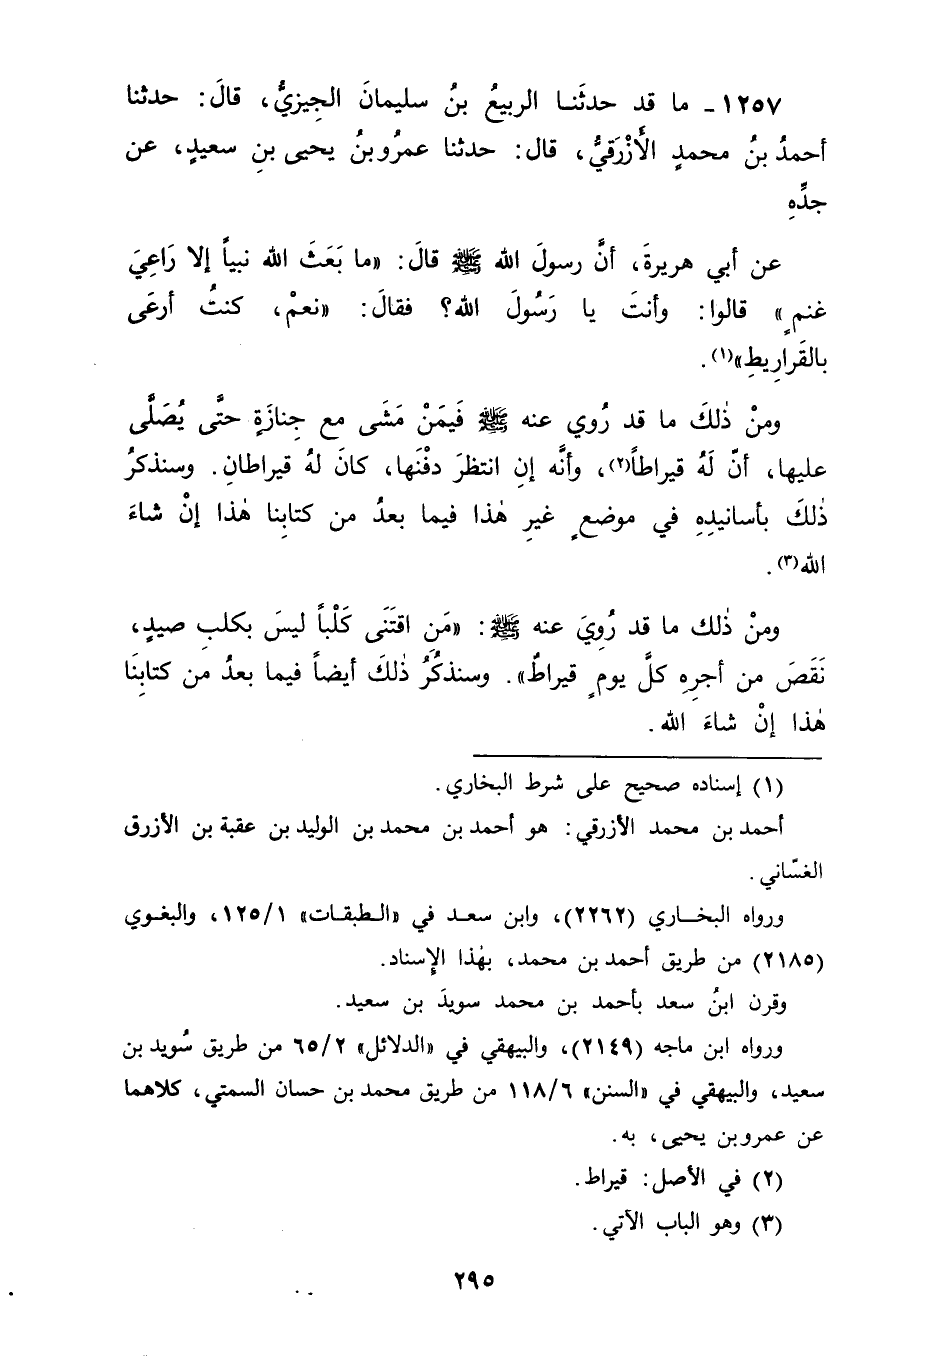 ١٢٥٧ـ ما قد حدثَنا الربيعُ بنُ سليمانَ الجِيزيُّ، قالَ: حدثنا
أحمدُ بنُ محمدٍ الأَزْرَقيُّ، قال: حدثنا عمرُو بنُ يحيى بنِ سعيدٍ، عن
جدِّهِ
عن أبي هريرةَ، أنَّ رسولَ الله ﷺ قالَ: «ما بَعَثَ الله نبياً إلا رَاعِيَ
غنمٍ» قالوا: وأنتَ يا رَسُولَ الله؟ فقالَ: «نعمْ، كنتُ أرعَى
بالقَرارِيطِ»(١).
ومنْ ذٰلكَ ما قد رُوي عنه ﷺ فَيمَنْ مَشَى مع جِنازَةٍ حتَّى يُصَلَّى
عليها، أنّ لَهُ قيراطاً(٢)، وأنَّه إن انتظرَ دفْنَها، كانَ لهُ قيراطانِ. وسنذكرُ
ذٰلكَ بأسانيدِهِ في موضعٍ غيرِ هٰذا فيما بعدُ من كتابِنا هٰذا إنْ شاءَ
الله(٣).
ومنْ ذٰلك ما قد رُوِيَ عنه ﷺ: «مَنِ اقتَنَى كَلْباً ليسَ بكلبِ صيدٍ،
نَقَصَ من أجرِهِ كلَّ يومٍ قيراطٌ». وسنذكُرُ ذٰلكَ أيضاً فيما بعدُ من كتابِنَا
هٰذا إنْ شاءَ الله.
(١) إسناده صحيح على شرط البخاري.
أحمد بن محمد الأزرقي: هو أحمد بن محمد بن الوليد بن عقبة بن الأزرق
الغسّاني.
ورواه البخاري (٢٢٦٢)، وابن سعد في «الطبقات» ١٢٥/١، والبغوي
(٢١٨٥) من طريق أحمد بن محمد، بهٰذا الإِسناد.
وقرن ابنُ سعد بأحمد بن محمد سويدَ بن سعيد.
ورواه ابن ماجه (٢١٤٩)، والبيهقي في «الدلائل» ٦٥/٢ من طريق سُويد بن
سعيد، والبيهقي في «السنن» ١١٨/٦ من طريق محمد بن حسان السمتي، كلاهما
عن عمرو بن يحيى، به.
(٢) في الأصل: قيراط.
(٣) وهو الباب الآتي.
٢٩٥